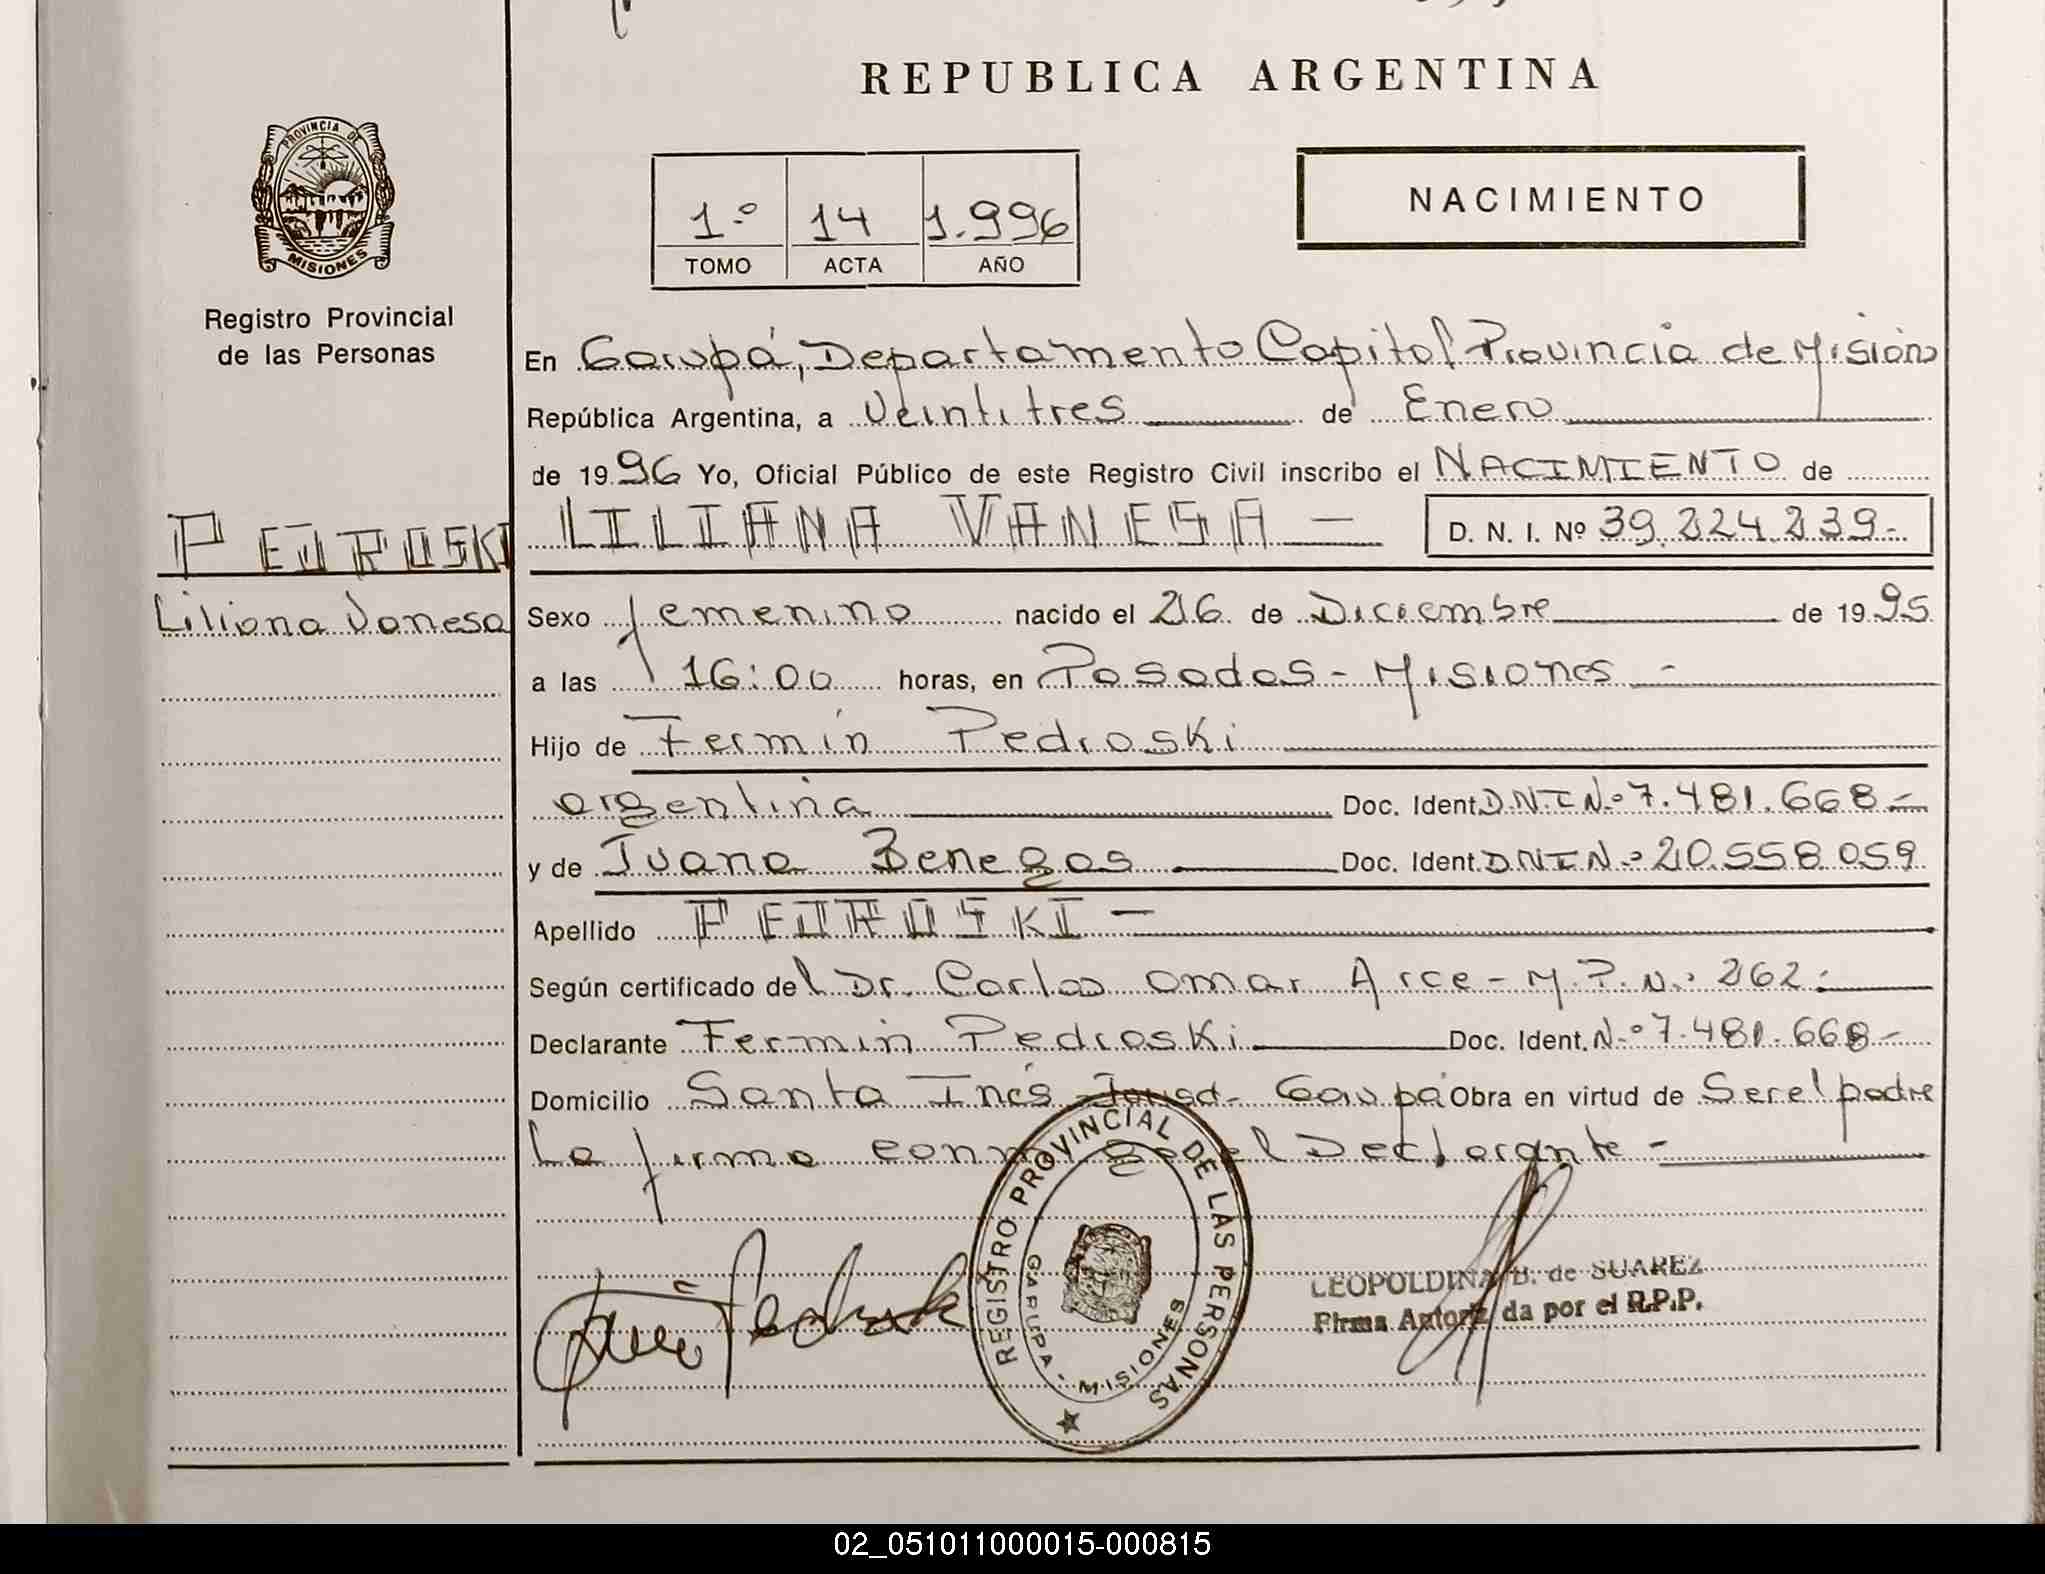 REPUBLICA ARGENTINA
PROVINCIA DE
MISIONES
Registro Provincial
de las Personas
1.º 14 1.996
TOMO ACTA AÑO
NACIMIENTO
En Garupá, Departamento Capital Provincia de Misiones
República Argentina, a Veintitres de Enero
de 1996 Yo, Oficial Público de este Registro Civil inscribo el NACIMIENTO de
PEDROSKI LILIANA VANESA — D. N. I. Nº 39.224.239-
Liliana Vanesa
Sexo femenino nacido el 26 de Diciembre de 1995
a las 16:00 horas, en Posadas - Misiones -
Hijo de Fermin Pedroski
argentina Doc. Ident. D.N.I N.º 7.481.668-
y de Juana Benegas Doc. Ident. D.N.I N.º 20.558.059
Apellido PEDROSKI -
Según certificado del Dr. Carlos Omar Arce - M.P.N.º 262.-
Declarante Fermin Pedroski Doc. Ident. N.º 7.481.668-
Domicilio Santa Inés Garupá Obra en virtud de Ser el padre
La firma conmigo el Declarante -
REGISTRO PROVINCIAL DE LAS PERSONAS
GARUPA - MISIONES
LEOPOLDINA B. de SUAREZ
Firma Autoriz da por el R.P.P.
02_051011000015-000815